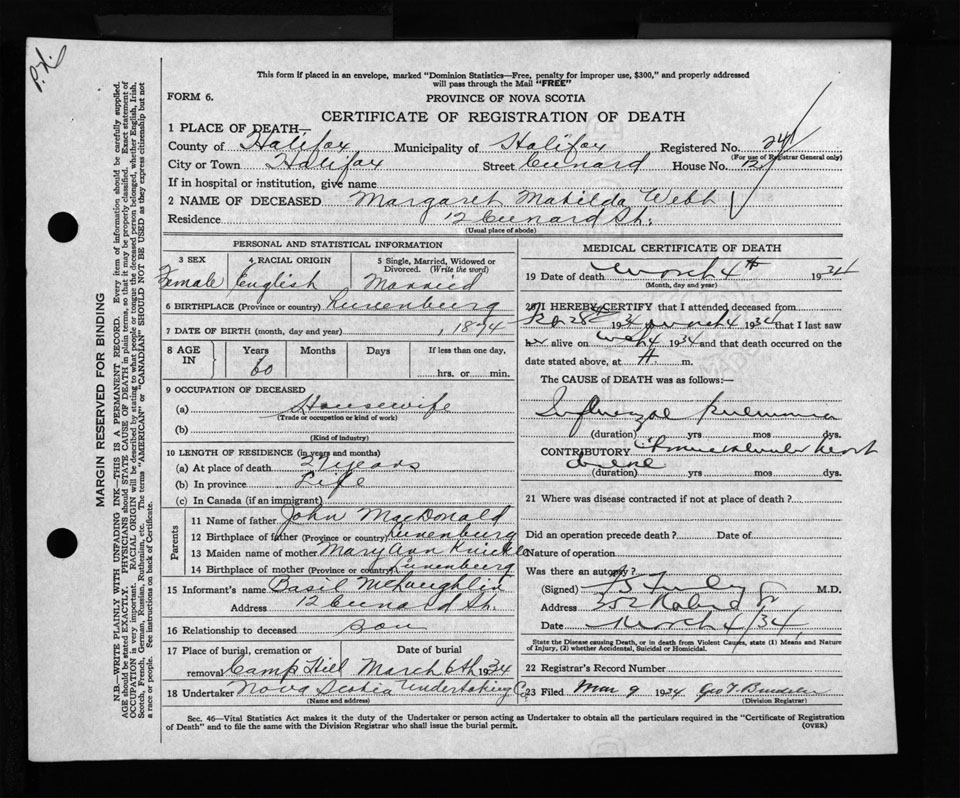 P.X.
This form if placed in an envelope, marked "Dominion Statistics—Free, penalty for improper use, $300," and properly addressed
will pass through the Mail "FREE"
FORM 6.
PROVINCE OF NOVA SCOTIA
CERTIFICATE OF REGISTRATION OF DEATH
1 PLACE OF DEATH—
County of Halifax Municipality of Halifax Registered No. 241
(For use of Registrar General only)
City or Town Halifax Street Cunard House No. 12
If in hospital or institution, give name
2 NAME OF DECEASED Margaret Matilda Webb
Residence 12 Cunard St.
(Usual place of abode)
PERSONAL AND STATISTICAL INFORMATION
3 SEX 4 RACIAL ORIGIN 5 Single, Married, Widowed or
Divorced. (Write the word)
Female English Married
6 BIRTHPLACE (Province or country) Lunenburg
7 DATE OF BIRTH (month, day and year) , 1874
8 AGE IN Years Months Days If less than one day,
60 hrs. or min.
9 OCCUPATION OF DECEASED
(a) Housewife
(Trade or occupation or kind of work)
(b)
(Kind of industry)
10 LENGTH OF RESIDENCE (in years and months)
(a) At place of death 27 years
(b) In province Life
(c) In Canada (if an immigrant)
Parents
11 Name of father John MacDonald
12 Birthplace of father (Province or country) Lunenburg
13 Maiden name of mother Mary Ann Knickle
14 Birthplace of mother (Province or country) Lunenburg
15 Informant's name Basil McLaughlin
Address 12 Cunard St.
16 Relationship to deceased son
17 Place of burial, cremation or Date of burial
removal Camp Hill March 6th 1934
18 Undertaker Nova Scotia Undertaking Co.
(Name and address)
MEDICAL CERTIFICATE OF DEATH
19 Date of death March 4th 1934
(Month, day and year)
20 I HEREBY CERTIFY that I attended deceased from
Feb 28 193 March 4 1934 that I last saw
her alive on 4 1934 and that death occurred on the
date stated above, at m.
The CAUSE of DEATH was as follows:—
Influenzal Pneumonia
(duration) yrs mos dys.
CONTRIBUTORY Chronic valvular heart
disease
(duration) yrs mos dys.
21 Where was disease contracted if not at place of death?
Did an operation precede death? Date of
Nature of operation
Was there an autopsy?
(Signed) M.D.
Address 352 Robie St
Date March 4/34
State the Disease causing Death, or in death from Violent Causes, state (1) Means and Nature
of Injury, (2) whether Accidental, Suicidal or Homicidal.
22 Registrar's Record Number
23 Filed Mar 9 1934 Geo T.
(Division Registrar)
Sec. 46—Vital Statistics Act makes it the duty of the Undertaker or person acting as Undertaker to obtain all the particulars required in the "Certificate of Registration
of Death" and to file the same with the Division Registrar who shall issue the burial permit. (OVER)
MARGIN RESERVED FOR BINDING
N.B.—WRITE PLAINLY WITH UNFADING INK—THIS IS A PERMANENT RECORD. Every item of information should be carefully supplied.
AGE should be stated EXACTLY. PHYSICIANS should STATE CAUSE OF DEATH in plain terms, so that it may be properly classified. Exact statement of
OCCUPATION is very important. RACIAL ORIGIN will be described by stating to what people or tongue the deceased person belonged, whether English, Irish,
Scotch, French, German, Russian, Ruthenian, etc. The terms "AMERICAN" or "CANADIAN" SHOULD NOT BE USED as they express citizenship but not
a race or people. See instructions on back of Certificate.